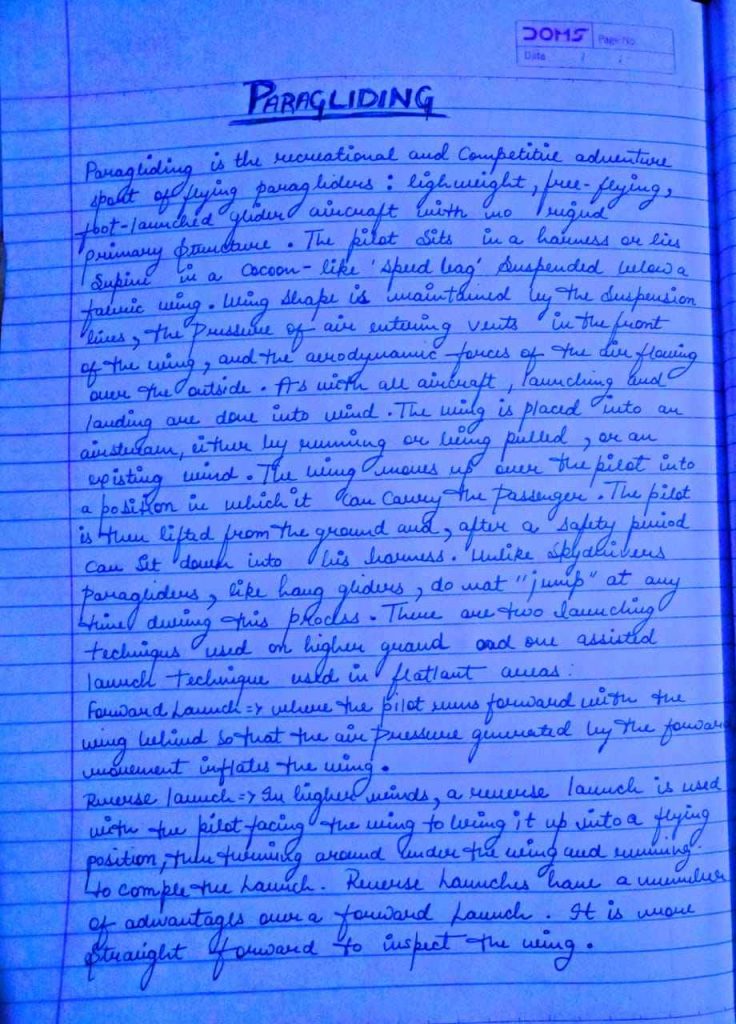 DOMS Page No.
Date / /
PARAGLIDING
Paragliding is the recreational and Competitive adventure
sport of flying paragliders : lighweight, free-flying,
foot-launched glider aircraft with no rigid
primary structure. The pilot Sits in a harness or lies
Supine in a Cocoon-like 'speed bag' Suspended below a
fabric wing. Wing shape is maintained by the Suspension
lines, the Pressure of air entering vents in the front
of the wing, and the aerodynamic forces of the air flowing
over the outside. As with all aircraft, launching and
landing are done into wind. The wing is placed into an
airstream, either by running or being pulled, or an
existing wind. The wing moves up over the pilot into
a position in which it can carry the Passenger. The pilot
is then lifted from the ground and, after a safety period
Can Sit down into his harness. Unlike Skydrivers
paragliders, like hang gliders, do not "jump" at any
time during this process. There are two launching
techniques used on higher ground and one assisted
launch technique used in flatlant areas:
Forward Launch => where the pilot runs forward with the
wing behind so that the air pressure generated by the forward
movement inflates the wing.
Reverse launch => In higher winds, a reverse launch is used
with the pilot facing the wing to bring it up into a flying
position, then turning around under the wing and running
to complete the Launch. Reverse Launches have a number
of advantages over a forward Launch. It is more
Straight forward to inspect the wing.